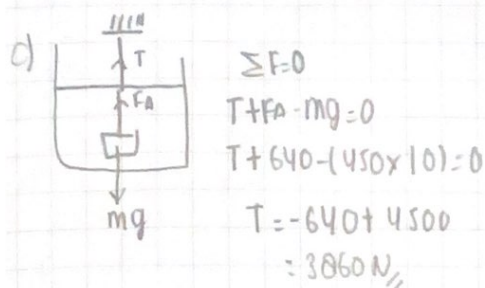 c)
T
FA
mg
ΣF=0
T+FA-mg=0
T+640-(450x10)=0
T=-640+4500
:3860N//